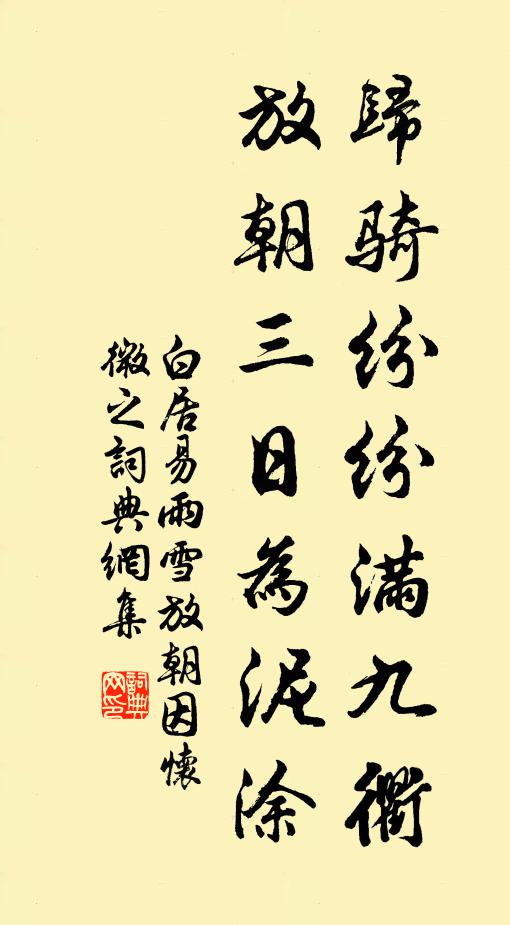 歸騎紛紛滿九衢
放朝三日為泥涂
白居易雨雪放朝因懷
微之詞典網集
詞典
网印